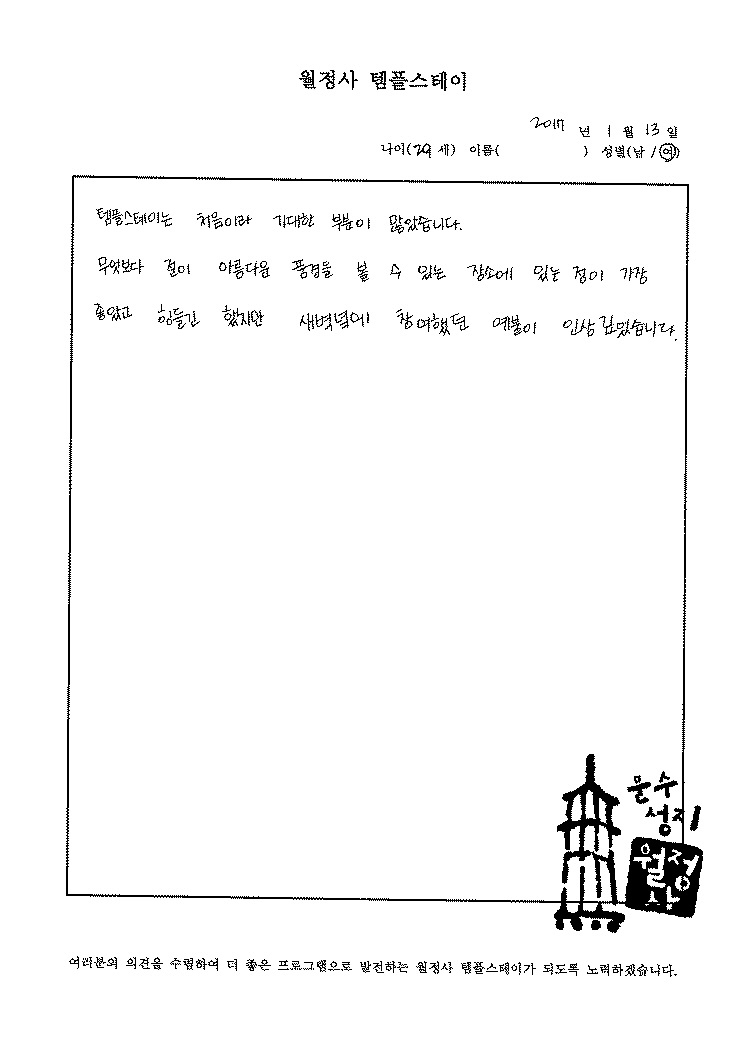 월정사 템플스테이
2017 년 1 월 13 일
나이(29 세) 이름( ) 성별(남 / 여)
템플스테이는 처음이라 기대한 부분이 많았습니다.
무엇보다 절이 아름다운 풍경을 볼 수 있는 장소에 있는 점이 가장
좋았고 힘들긴 했지만 새벽녘에 참여했던 예불이 인상 깊었습니다.
문수
성지
월정
사
여러분의 의견을 수렴하여 더 좋은 프로그램으로 발전하는 월정사 템플스테이가 되도록 노력하겠습니다.